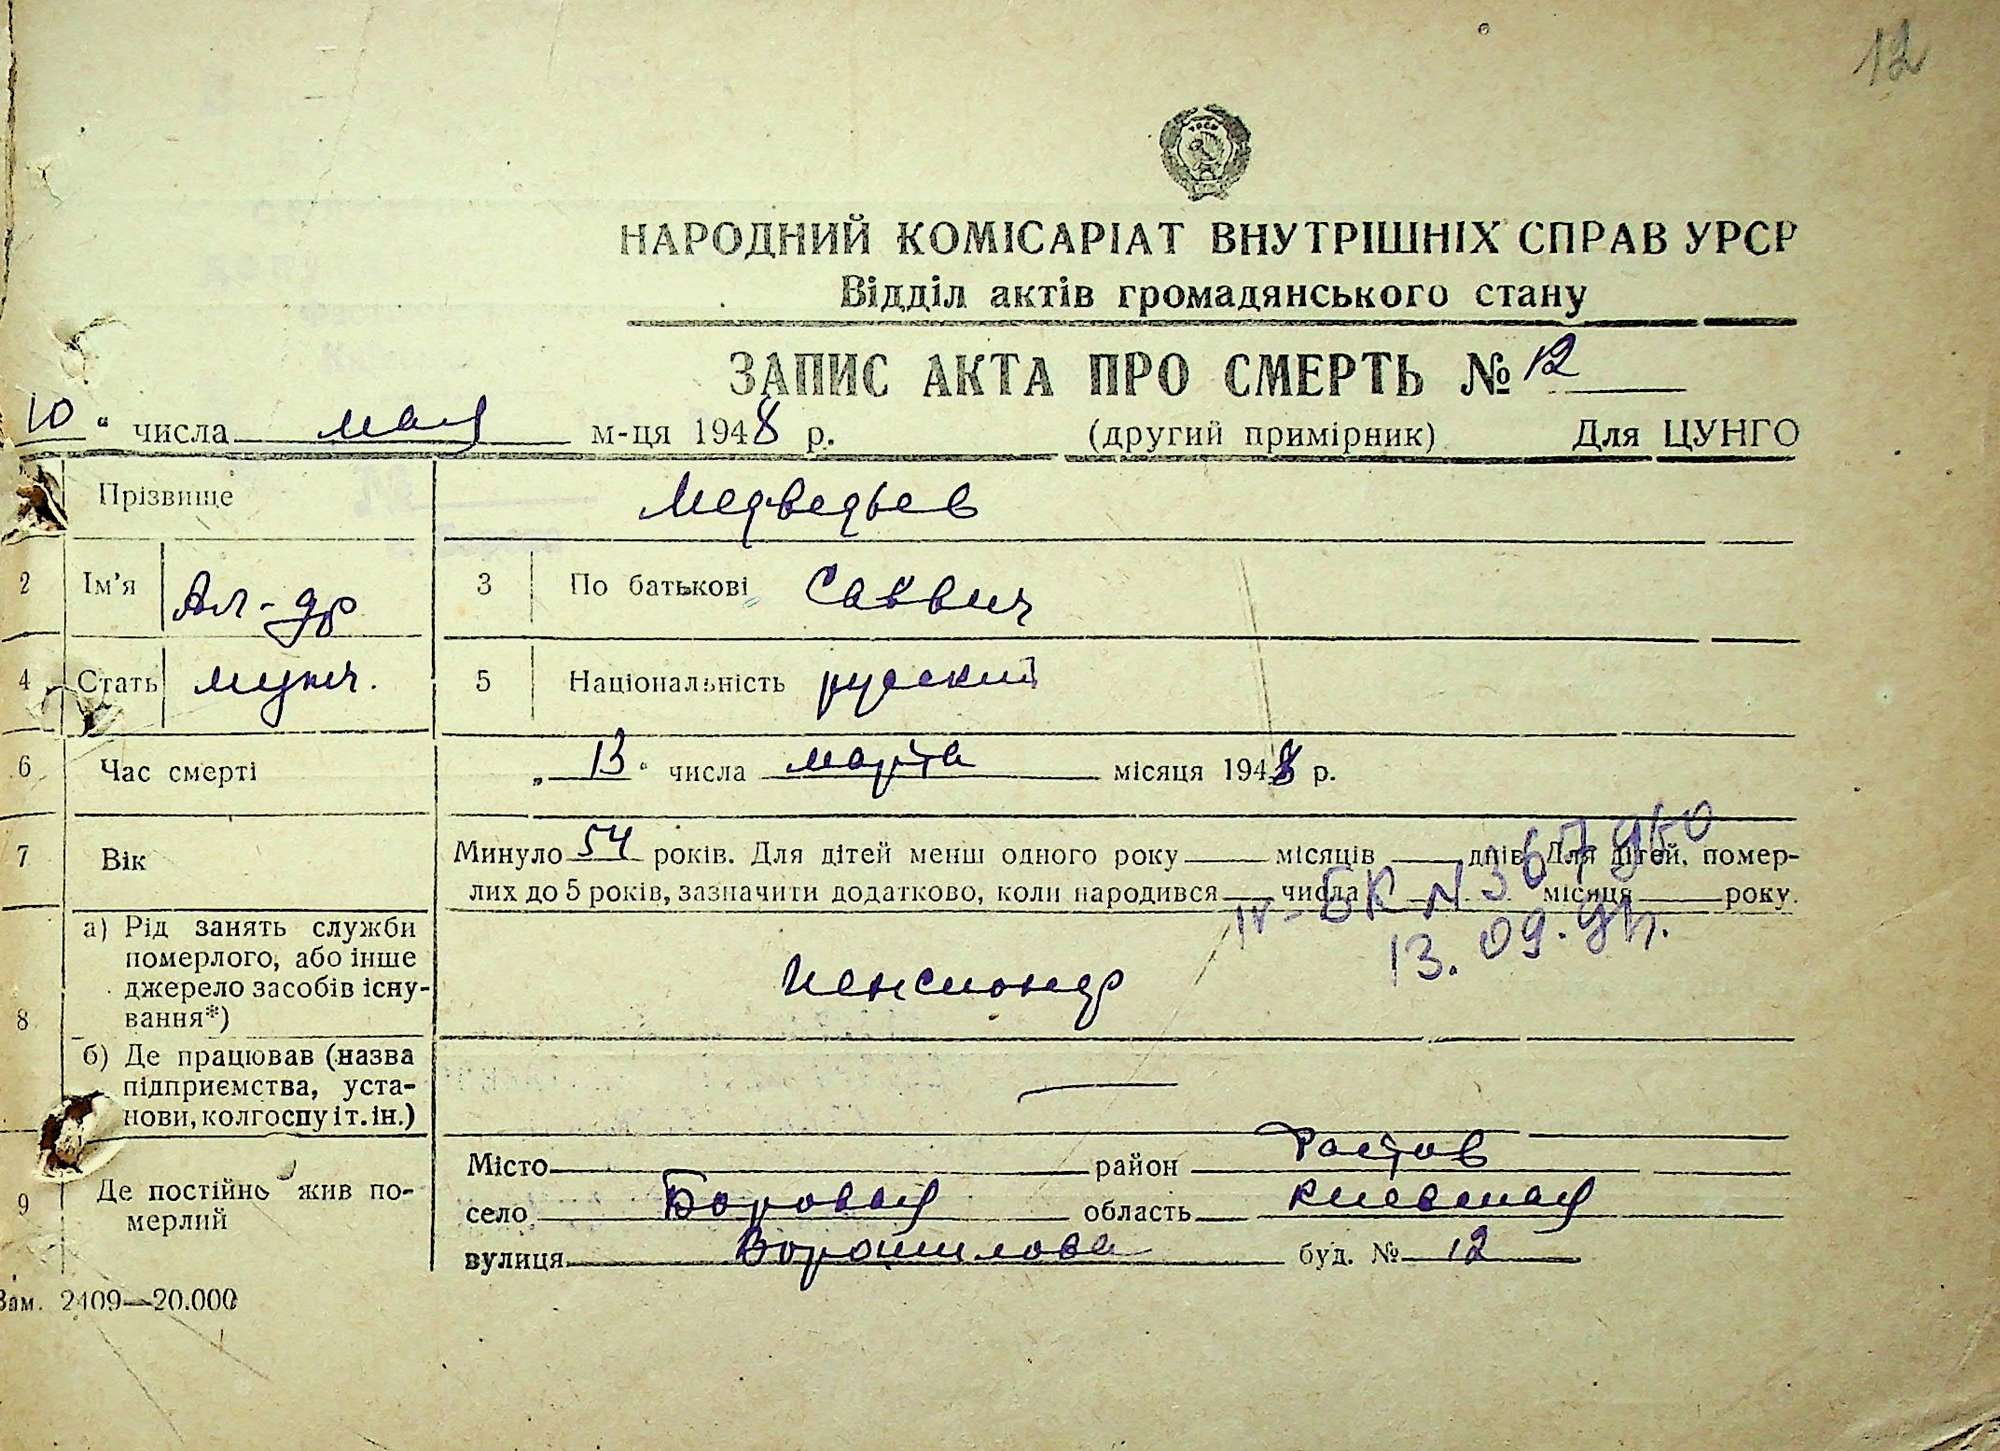 12
НАРОДНИЙ КОМІСАРІАТ ВНУТРІШНІХ СПРАВ УРСР
Відділ актів громадянського стану
ЗАПИС АКТА ПРО СМЕРТЬ № 12
10 " числа мая м-ця 1948 р. (другий примірник) Для ЦУНГО
Прізвище Медведьев
2 Ім'я Ал-др 3 По батькові Саввич
4 Стать мужч. 5 Національність русский
6 Час смерті „ 13 " числа марта місяця 1948 р.
7 Вік Минуло 54 років. Для дітей менш одного року місяців днів. Для дітей, помер-
лих до 5 років, зазначити додатково, коли народився числа місяця року.
БК N 367
13.09.
8 а) Рід занять служби
померлого, або інше
джерело засобів існу-
вання*)
Пенсионер
б) Де працював (назва
підприємства, уста-
нови, колгоспу і т. ін.) —
9 Де постійно жив по-
мерлий
Місто район
село Боровая область Киевская
вулиця Ворошилова буд. № 12
Зам. 2409—20.000